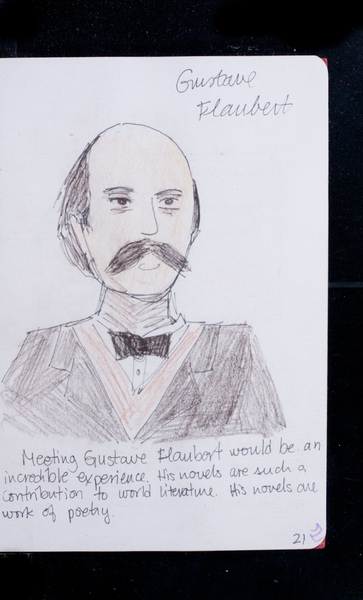 Gustave
Flaubert
Meeting Gustave Flaubert would be an
incredible experience. His novels are such a
contribution to world literature. His novels are
work of poetry.
21